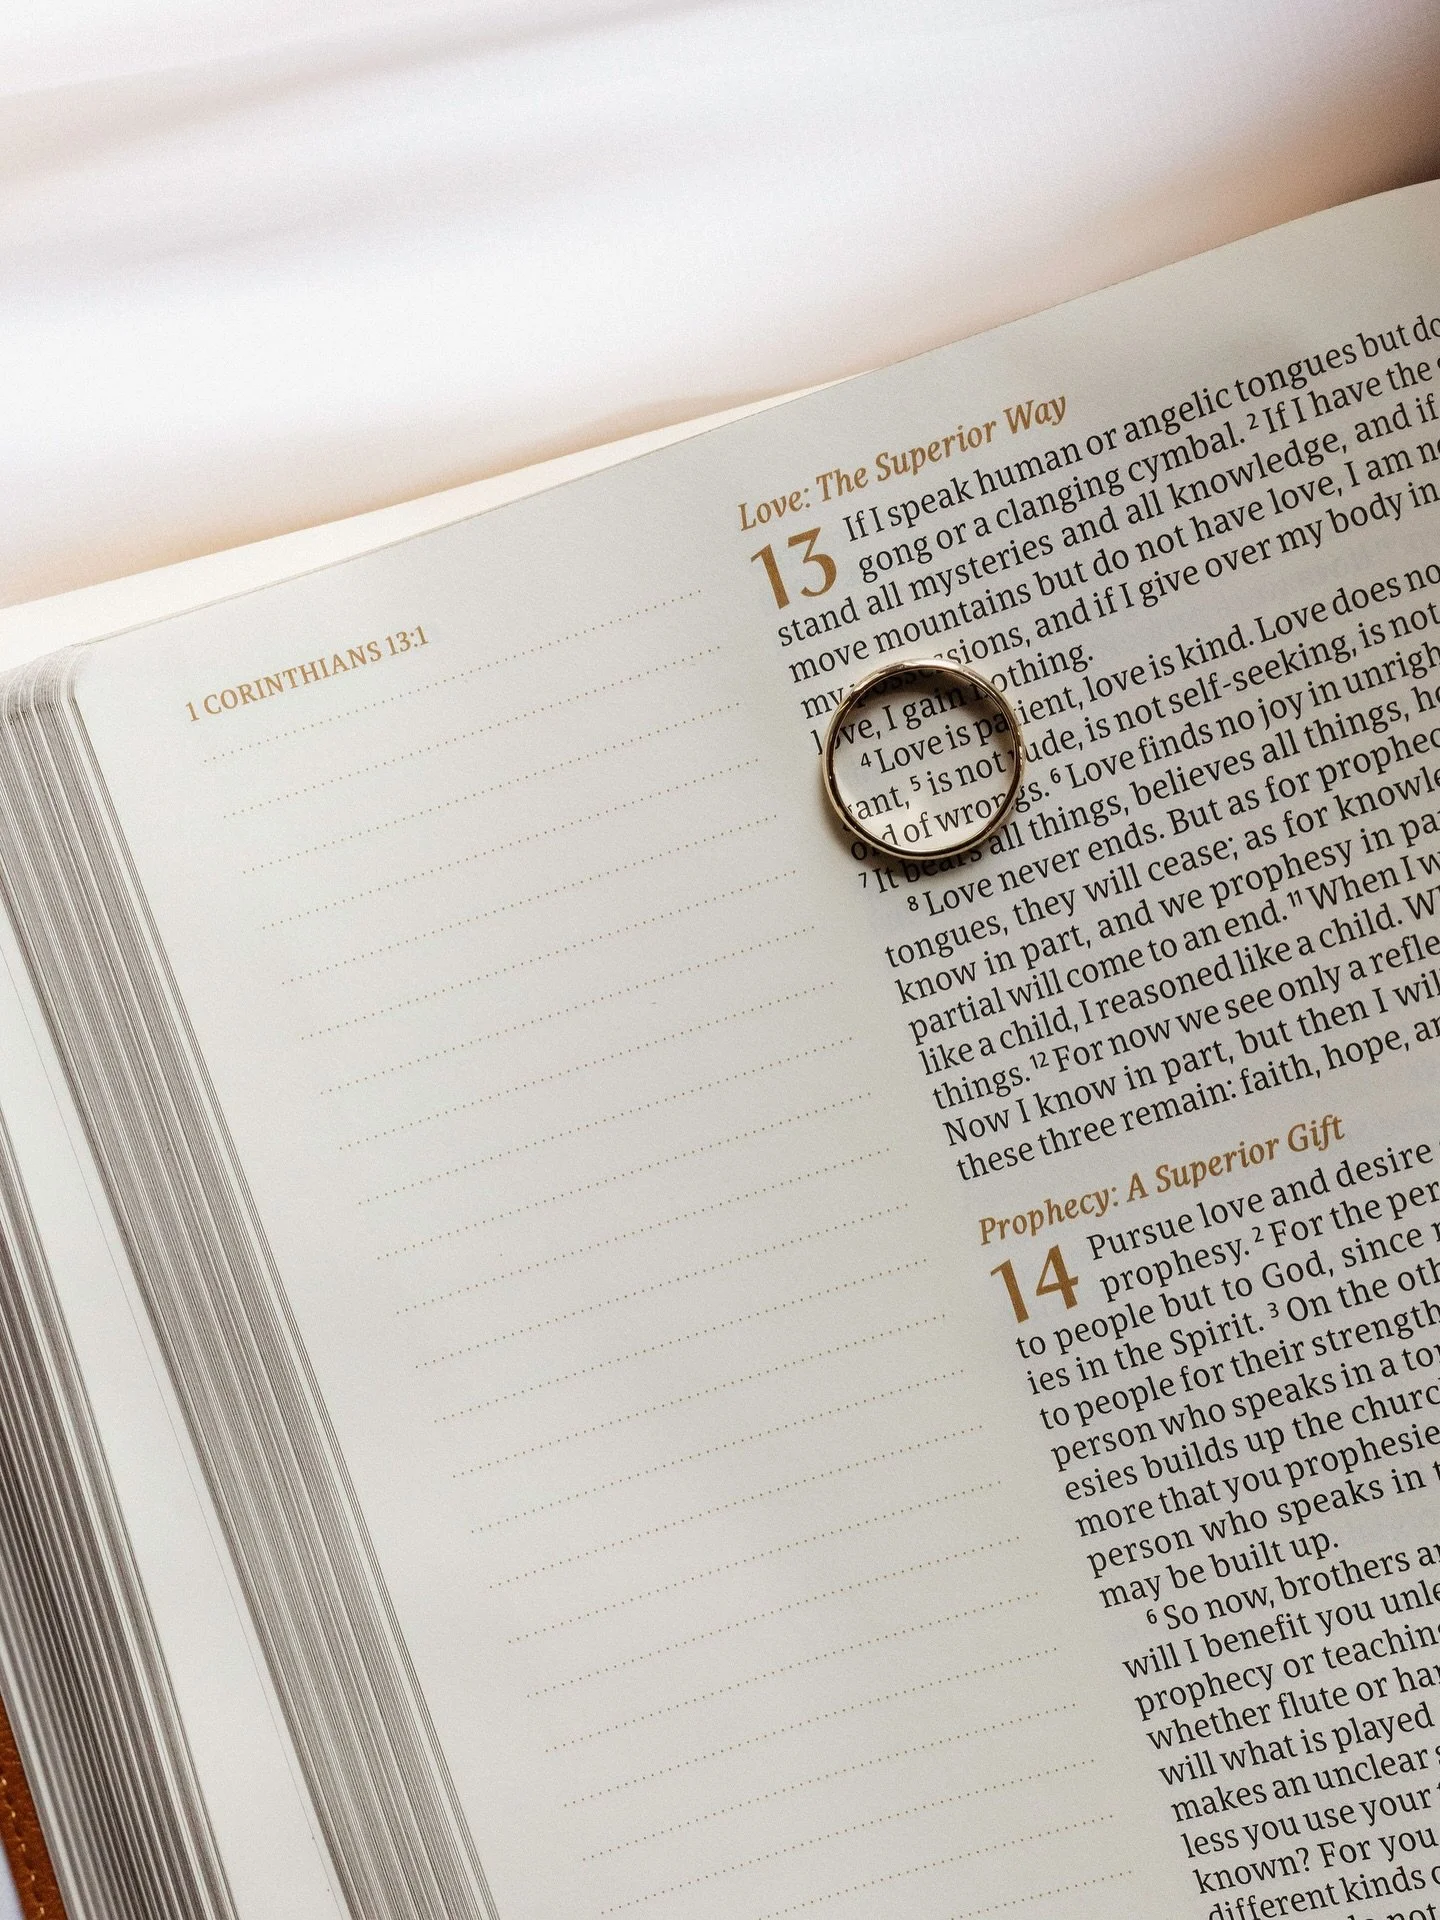 1 CORINTHIANS 13:1
Love: The Superior Way
13 If I speak human or angelic tongues but do
gong or a clanging cymbal. 2 If I have the
stand all mysteries and all knowledge, and if
move mountains but do not have love, I am
my possessions, and if I give over my body in
love, I gain nothing.
4 Love is patient, love is kind. Love does
gant, 5 is not rude, is not self-seeking, is not
ord of wrongs. 6 Love finds no joy in
7 It bears all things, believes all things,
8 Love never ends. But as for
tongues, they will cease; as for
know in part, and we prophesy in
partial will come to an end. 11 When I
like a child, I reasoned like a child.
things. 12 For now we see only a
Now I know in part, but then I
these three remain: faith, hope,
Prophecy: A Superior Gift
14 Pursue love and desire
prophesy. 2 For the
to people but to God, since
ies in the Spirit. 3 On the
to people for their
person who speaks in a
esies builds up the
more that you
person who speaks in
may be built up.
6 So now, brothers
will I benefit you
prophecy or
whether flute or
will what is played
makes an unclear
less you use your
known? For you
different kinds